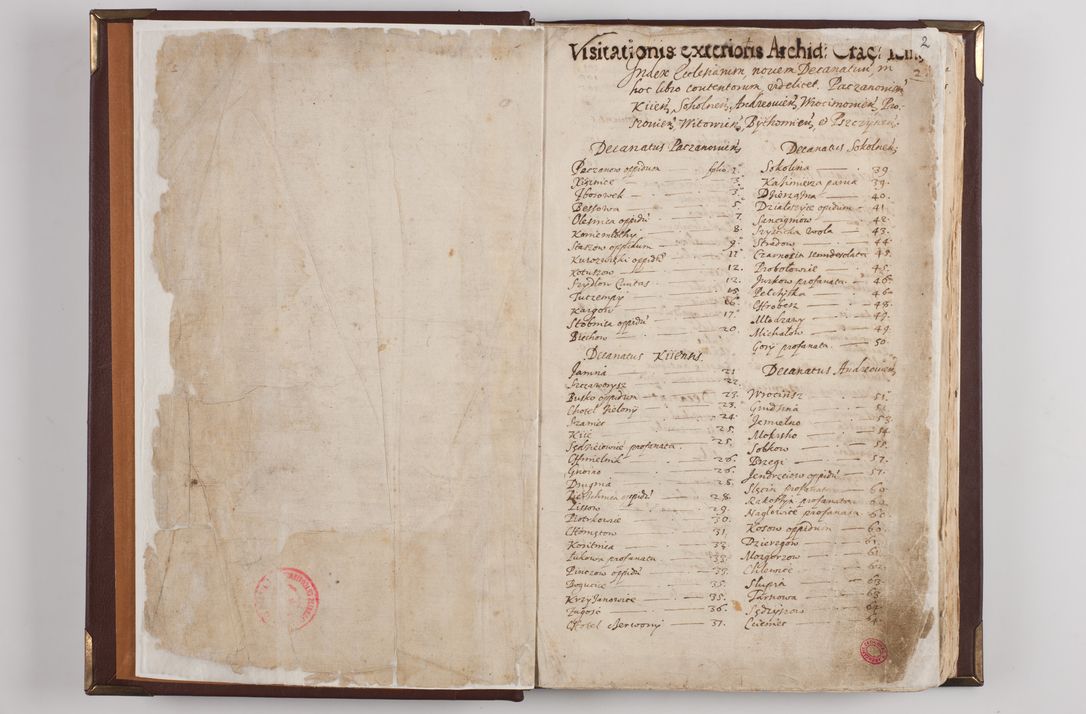 2
Visitationis exterioris Archid: Crac:
Index Ecclesiarum, novem Decanatuum, in
hoc libro contentorum, videlicet. Paczanovien,
Kiien, Sokolnen, Andreovien, Wrocimovien, Pro-
szovien, Witovien, Bythomien, et Pszczynen.
Decanatus Paczanovien,
Paczanow oppidum folio. 2.
Xiznice 3.
Zborowek 3.
Bessowa 5.
Olesnica oppidu 7.
Koniemlothy 8.
Staszow oppidum 9.
Kurozwęki oppidu 11.
Kotuszow 12.
Szydlow Civitas 12.
Tuczempy 15.
Kargow 16.
Stobnica oppidu 17.
Biechow 20.
Decanatus Kiiensis.
Janina 21.
Szczaworysz 22.
Busko oppidum 23.
Chotel Zielony 23.
Szaniec 24.
Kiie 25.
Sędzieiowice profanata 25.
Chmielnik 26.
Gnoino 26.
Drugnia 28.
Pierschnica oppidu 28.
Lissow 29.
Piotrkowice 30.
Chomętow 31.
Koritnica 32.
Lukowa profanata 33.
Pinczow oppidu 33.
Bogucice 35.
Krzyżanowice 35.
Zagosc 36.
Chotel Czerwony 37.
Decanatus Sokolnen,
Sokolina 39.
Kazimierza parva 39.
Dzierążna 40.
Dzialoszyce opidum 41.
Sancigniow 42.
Szyszicka wola 43.
Stradow 44.
Czarnocin semidesolata 45.
Probolowice 45.
Jurkow profanata 46.
Pelczyska 46.
Chrobesz 48.
Mlodzawy 49.
Michalow 49.
Gory profanata 50.
Decanatus Andreovien,
Wrocirisz 51.
Grudzina 52.
Jemielno 53.
Mokrsko 54.
Sobkow 55.
Brzegi 57.
Jendrzeiow oppidu 57.
Slęcin profanata 60.
Rakoszyn profanata 60.
Naglowice profanata 60.
Kosow oppidum 60.
Dzierzgow 61.
Mozgorzow 61.
Chlewice 62.
Slupia 63.
Tarnowa 63.
Sędzyszow 64.
Cierniec 64.